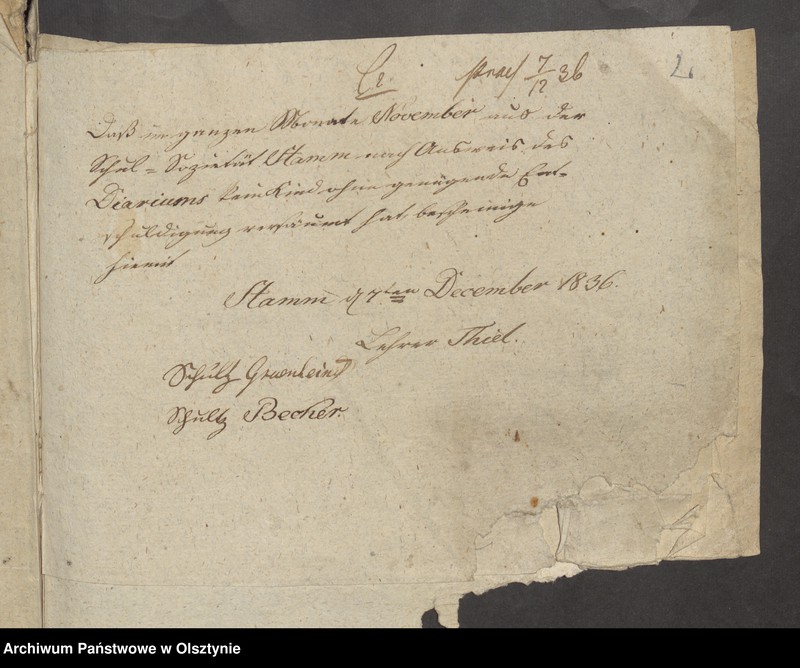 praes 7/12 36
2.
Daß im ganzen Monate November aus der
Schul=Sozietät Stamm nach Ausweis des
Diariums kein Kind ohne genügende Ent-
schuldigung versäumt hat bescheinige
hiemit
Stamm d 7ten December 1836.
Lehrer Thiel.
Schultz
Schultz Becher.
Archiwum Państwowe w Olsztynie